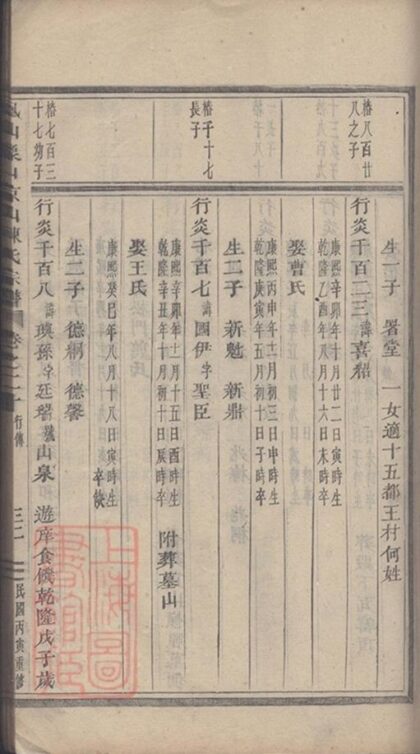 生一子 署堂 一女適十五都王村何姓
椿八百廿
八之子
行炎千百二三諱喜紹
康熙辛卯年十月廿二日寅時生
乾隆乙酉年八月十六日未時卒
娶曹氏
康熙丙申年十二月初三日申時生
乾隆庚午年五月初十日子時卒
生二子 新魁 新鼎
椿千十七
長子
行炎千百七諱國伊字聖臣
康熙辛卯年十二月十五日酉時生
乾隆辛丑年十一月初十日辰時卒
附葬墓山
娶王氏
康熙癸巳年八月十八日寅時生
卒缺
生二子 德綱 德馨
椿七百三
十七幼子
行炎千百八諱璵孫字廷瑨號山泉 遊庠食餼乾隆戊子歲
陳氏宗譜 卷之二十 行傳 三二 民國丙寅重修
上海圖書館藏